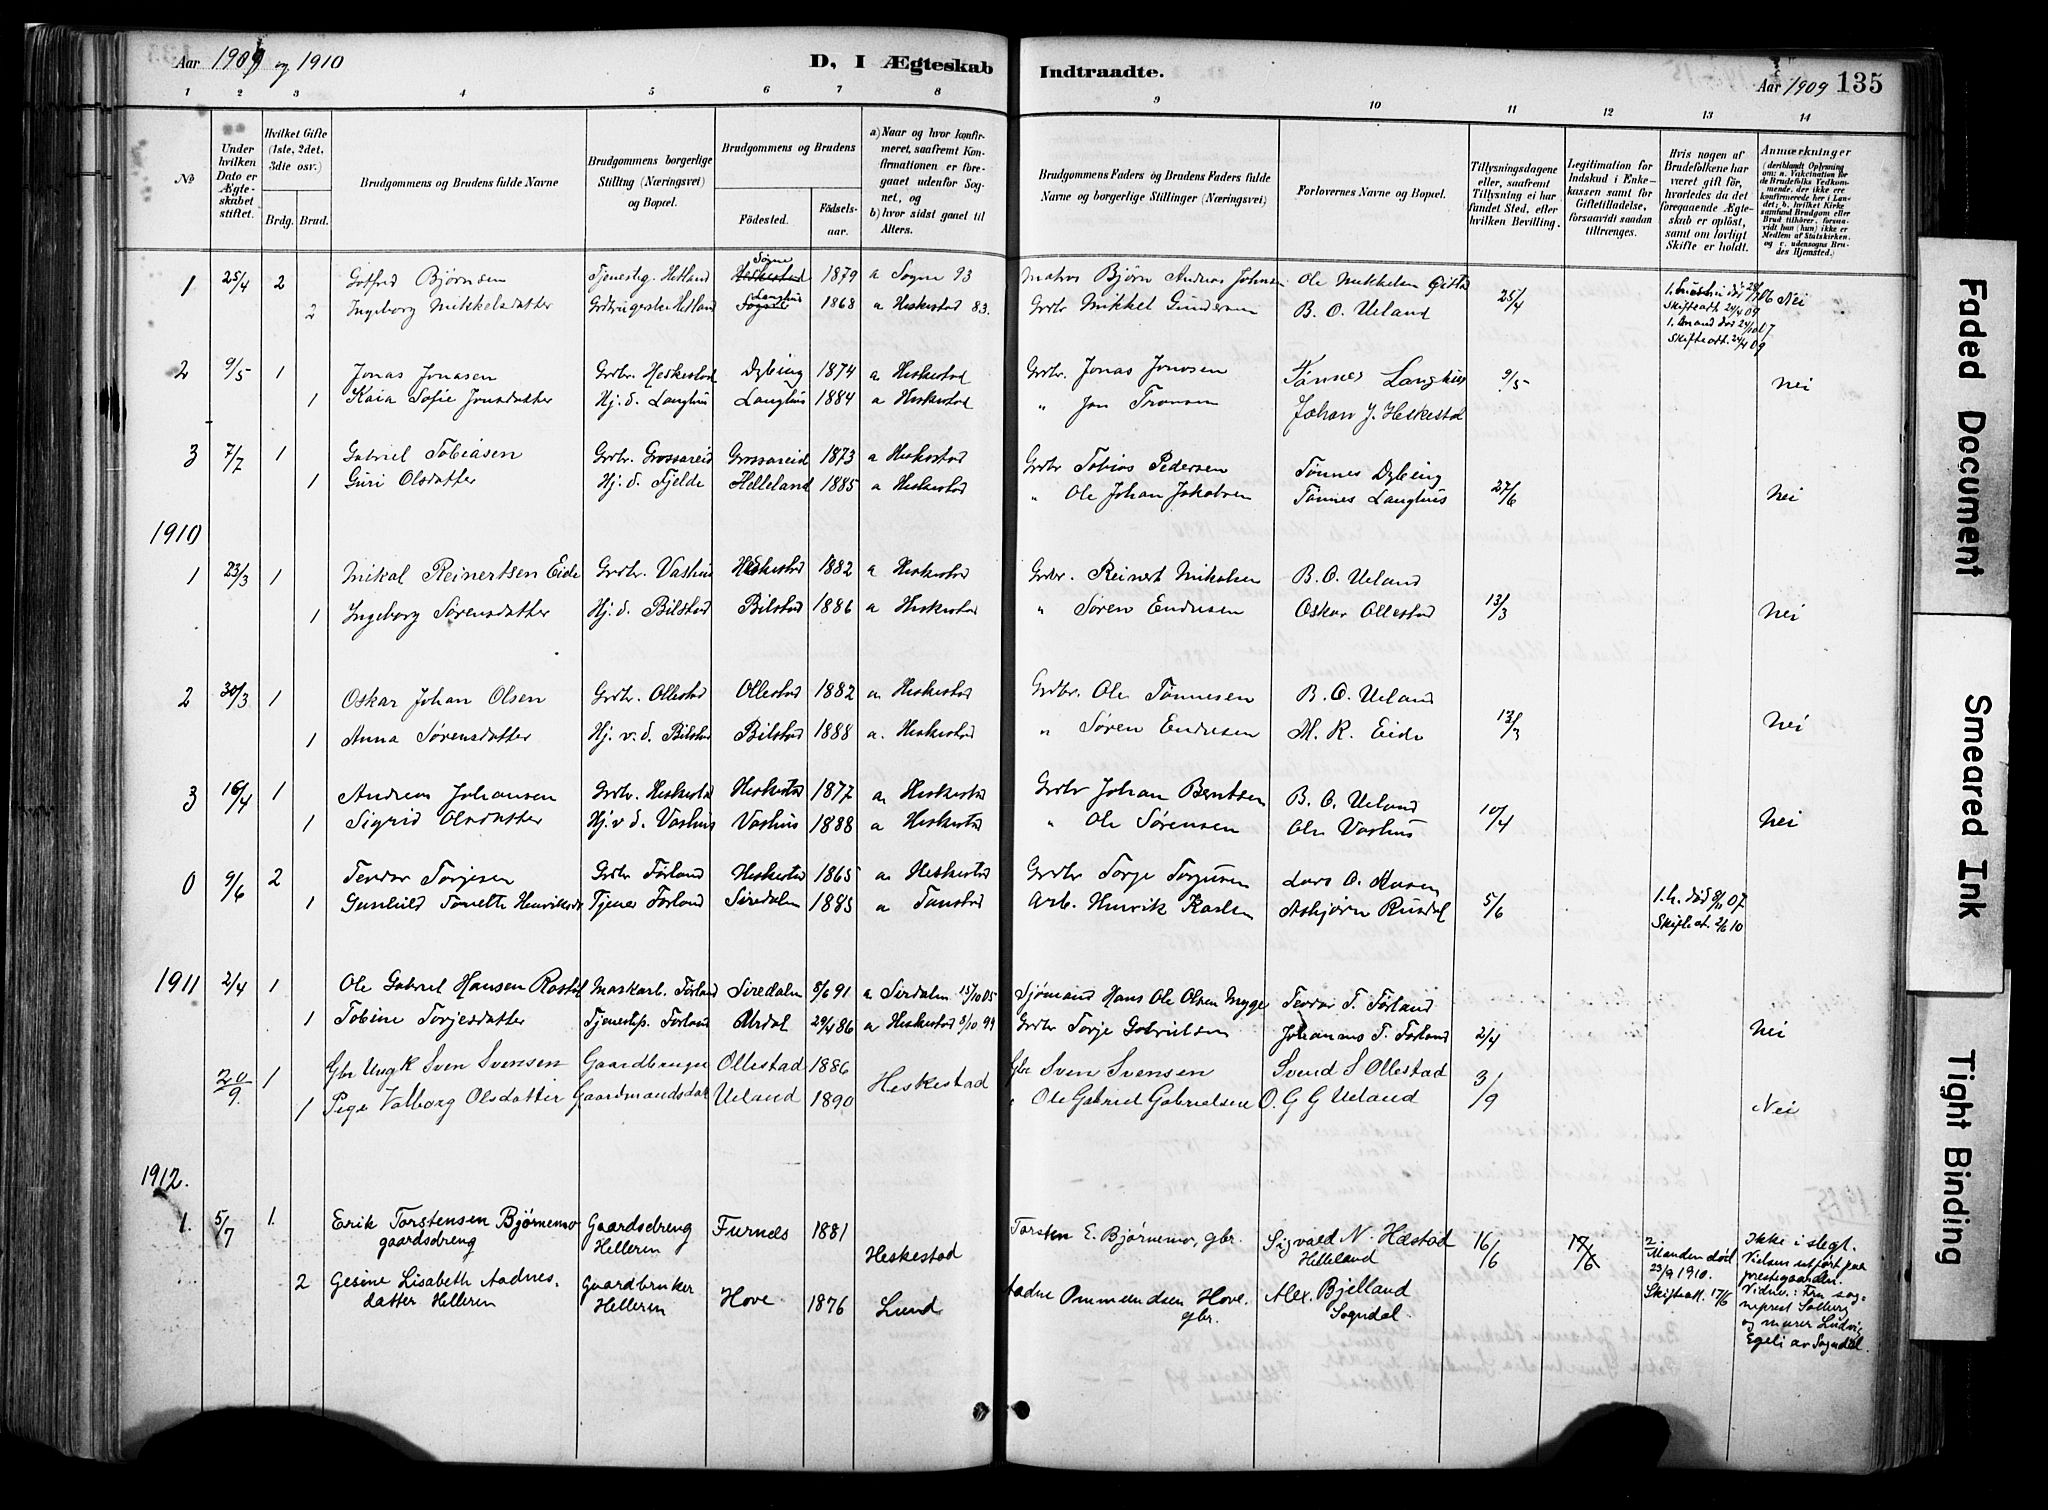 Aar 1909 og 1910
D, I Ægteskab Indtraadte.
Aar 1909 135
1 2 3 4 5 6 7 8 9 10 11 12 13 14
No
Under hvilken Dato er Ægteskabet stiftet.
Hvilket Gifte (1ste, 2det, 3die osv.)
Brdg. Brud.
Brudgommens og Brudens fulde Navne
Brudgommens borgerlige Stilling (Næringsvei) og Bopæl.
Brudgommens og Brudens
Fødested. Fødselsaar.
a) Naar og hvor konfirmeret, saafremt Konfirmationen er foregaaet udenfor Sognet, og
b) hvor sidst gaaet til Alters.
Brudgommens Faders og Brudens Faders fulde Navne og borgerlige Stillinger (Næringsvei)
Forlovernes Navne og Bopæl.
Tillysningsdagene eller, saafremt Tillysning ei har fundet Sted, efter hvilken Bevilling.
Legitimation for Indskud i Enkekassen samt for Giftetilladelse, forsaavidt saadan tiltrænges.
Hvis nogen af Brudefolkene har været gift før, hvorledes da det foregaaende Ægteskab er opløst, samt om lovligt Skifte er holdt.
Anmærkninger
1 25/4 2 Gotfred Bjørnsen Tjenestg. Hetland Sogne 1879 a Sogne 93 Matros Bjørn Andreas Johnsen Ole Mikkelsen
2 Ingeborg Mikkelsdatter Hetland Langhus 1868 a Heskestad 83. Grdbr Mikkel Gundersen B. O. Ueland 25/4 Nei
2 9/5 1 Jonas Jonasen Grdbr. Heskestad Dybing 1874 a Heskestad Grdbr. Jonas Jonasen Tønnes Langhus 9/5 Nei
1 Kaia Sofie Jonsdatter Hj. d. Langhus Langhus 1884 a Heskestad " Jon Tronsen Johan J. Heskestad
3 7/7 1 Gabriel Tobiasen Grdbr. Grossareid Grossareid 1873 a Heskestad Grdbr Tobias Pedersen Tønnes Dybing
1 Guri Olsdatter Hj. d. Fjelde Helleland 1885 a Heskestad " Ole Johan Jakobsen Tønnes Langhus 27/6 Nei
1910
1 23/3 1 Mikal Reinertsen Eide Grdbr. Vashus Heskestad 1882 a Heskestad Grdbr. Reinert Mikalsen B. O. Ueland
1 Ingeborg Sørensdatter Hj. d. Bilstad Bilstad 1886 a Heskestad " Søren Endresen Oskar Ollestad 13/3 Nei
2 30/3 1 Oskar Johan Olsen Grdbr. Ollestad Ollestad 1882 a. Heskestad Grdbr. Ole Tønnesen B. O. Ueland
1 Anna Sørensdatter Hj. v. d. Bilstad Bilstad 1888 a. Heskestad " Søren Endresen M. R. Eide 13/3 Nei
3 16/4 1 Andreas Johansen Grdbr. Heskestad Heskestad 1877 a. Heskestad Grdbr Johan Berntsen B. O. Ueland
1 Sigrid Olsdatter Hj. v d. Vashus Vashus 1888 a Heskestad " Ole Sørensen Ole Vashus 10/4 Nei
0 9/6 2 Teodor Torjesen Grdbr Førland Heskestad 1865 a. Heskestad Grdbr Torje Torjusen Lars O.
1 Gunhild Tonette Henriksdt Tjener Førland Siredalen 1885 a Tonstad Arb. Henrik Karlsen Asbjørn Rusdal 5/6 1. h. død 8/11 07
Skifteat. 2/6 10
1911 2/4 1 Ole Gabriel Hansen Maskarb. Førland Siredalen 5/6 91 a Sirdalen 15/10 05 Sjømand Hans Ole Olsen Myge Teodor T. Førland
1 Tobine Torjesdatter Tjenestep. Førland Urdal 29/4 86 a Heskestad 8/10 99 Grdbr Torje Gabrielsen Johannes T. Førland 2/4 Nei
20/9 1 Gbr Ungk Sven Svensen Gaardbruger Ollestad 1886 Heskestad Gbr Sven Svensen Svend S Ollestad 3/9
1 Pige Valborg Olsdatter Gaardmandsdat Ueland 1890 " Ole Gabriel Gabrielsen O. G G Ueland Nei
1912.
1. 5/7 1. Erik Torstensen Bjørnemo Gaardsdreng Furnes 1881 Heskestad Torsten E. Bjørnemo, gbr. Sigvald N. Hæstad 16/6 17/6 2. Manden død Ikke i slegt.
gaardsdreng Helleren Helleland 23/9 1910. Vielsen utført paa
2 Gesine Lisabeth Aadnes- Gaardbruker Hove 1876 Lund Aadne Ommundsen Hove. Alex. Bjelland Skifteatt. 17/6 prestegaarden.
datter Helleren Helleren gbr. Sogndal. Vidner: Fru sogneprest Solberg
og murer Ludvig
Egeli av Sogndal.
Faded Document
Smeared Ink
Tight Binding